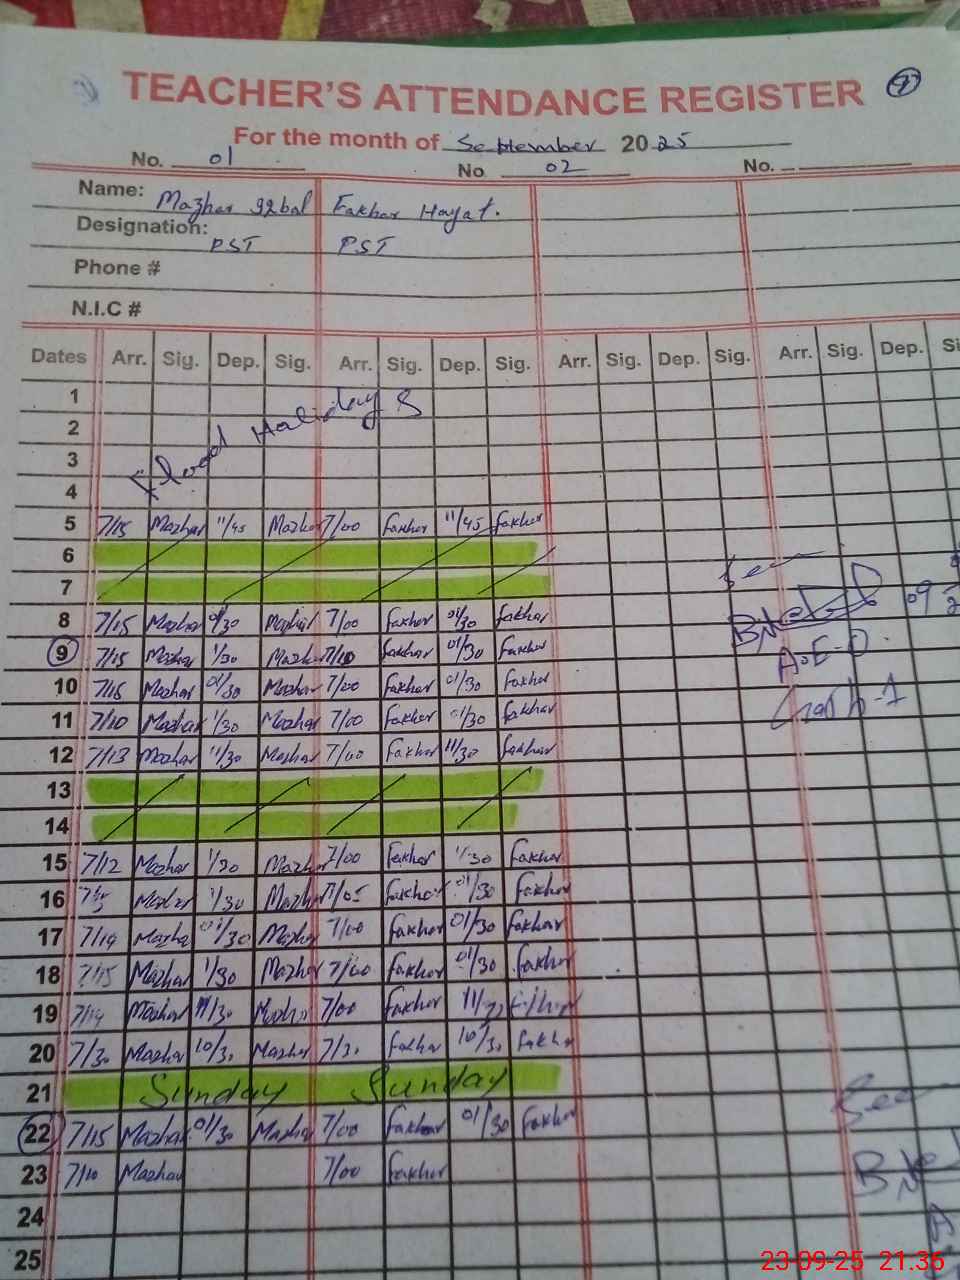 TEACHER'S ATTENDANCE REGISTER 9
For the month of September 2025
No. 01 No 02 No.
Name: Mazhar Iqbal Fakhar Hayat.
Designation: PST PST
Phone #
N.I.C #
Dates Arr. Sig. Dep. Sig. Arr. Sig. Dep. Sig. Arr. Sig. Dep. Sig. Arr. Sig. Dep. Si
1
2
3
4
Flood Holidays
5 7/15 Mazhar 11/45 Mazhar 7/00 Fakhar 11/45 Fakhar
6
7
See
8 7/15 Mazhar 01/30 Mazhar 7/00 Fakhar 01/30 Fakhar 09
9 7/15 Mazhar 1/30 Mazhar 7/10 Fakhar 01/30 Fakhar
A.E-O
10 7/15 Mazhar 01/30 Mazhar 7/00 Fakhar 01/30 Fakhar
11 7/10 Mazhar 1/30 Mazhar 7/00 Fakhar 01/30 Fakhar
12 7/13 Mazhar 11/30 Mazhar 7/00 Fakhar 11/30 Fakhar
13
14
15 7/12 Mazhar 1/30 Mazhar 7/00 Fakhar 1/30 Fakhar
16 Mazhar 1/30 Mazhar 7/05 Fakhar 01/30 Fakhar
17 7/14 Mazhar 01/30 Mazhar 7/00 Fakhar 01/30 Fakhar
18 7/15 Mazhar 1/30 Mazhar 7/00 Fakhar 01/30 Fakhar
19 7/14 Mazhar 11/30 Mazhar 7/00 Fakhar 11/30 Fakhar
20 7/30 Mazhar 10/30 Mazhar 7/30 Fakhar 10/30 Fakhar
21 Sunday Sunday
See
22 7/15 Mazhar 01/30 Mazhar 7/00 Fakhar 01/30 Fakhar
23 7/10 Mazhar 7/00 Fakhar
24
25
23-09-25 21:36